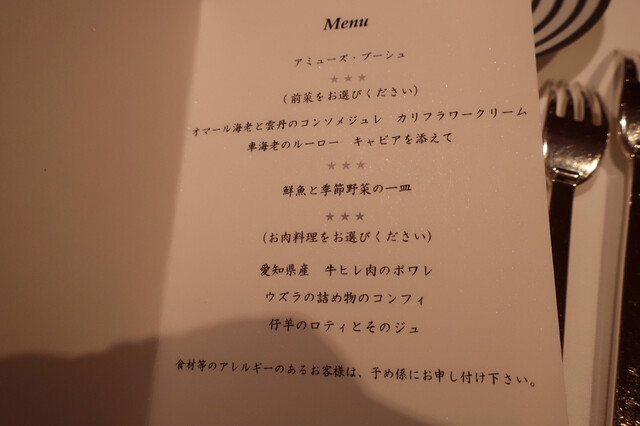 Menu
アミューズ・ブーシュ
★★★
（前菜をお選びください）
オマール海老と雲丹のコンソメジュレ　カリフラワークリーム
車海老のルーロー　キャビアを添えて
★★★
鮮魚と季節野菜の一皿
★★★
（お肉料理をお選びください）
愛知県産　牛ヒレ肉のポワレ
ウズラの詰め物のコンフィ
仔羊のロティとそのジュ
食材等のアレルギーのあるお客様は、予め係にお申し付け下さい。